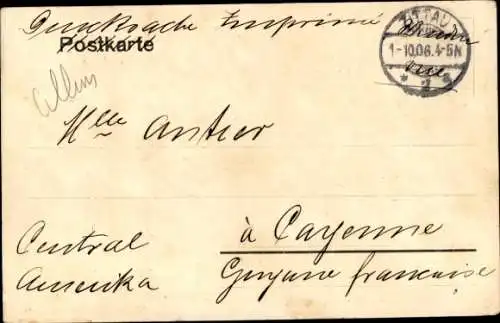 Drucksache Imprimé
Postkarte
ZITTAU
1-10.06.4-5N
* 2 *
Mlle Antier
à Cayenne
Guyane francaise
Central
Amerika